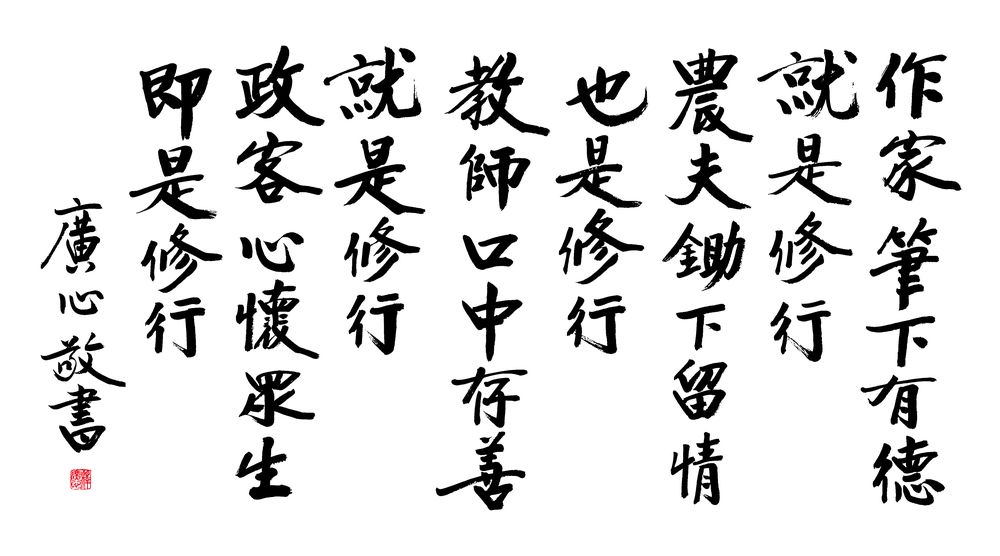 作家筆下有德
就是修行
農夫鋤下留情
也是修行
教師口中存善
就是修行
政客心懷眾生
即是修行
廣心敬書